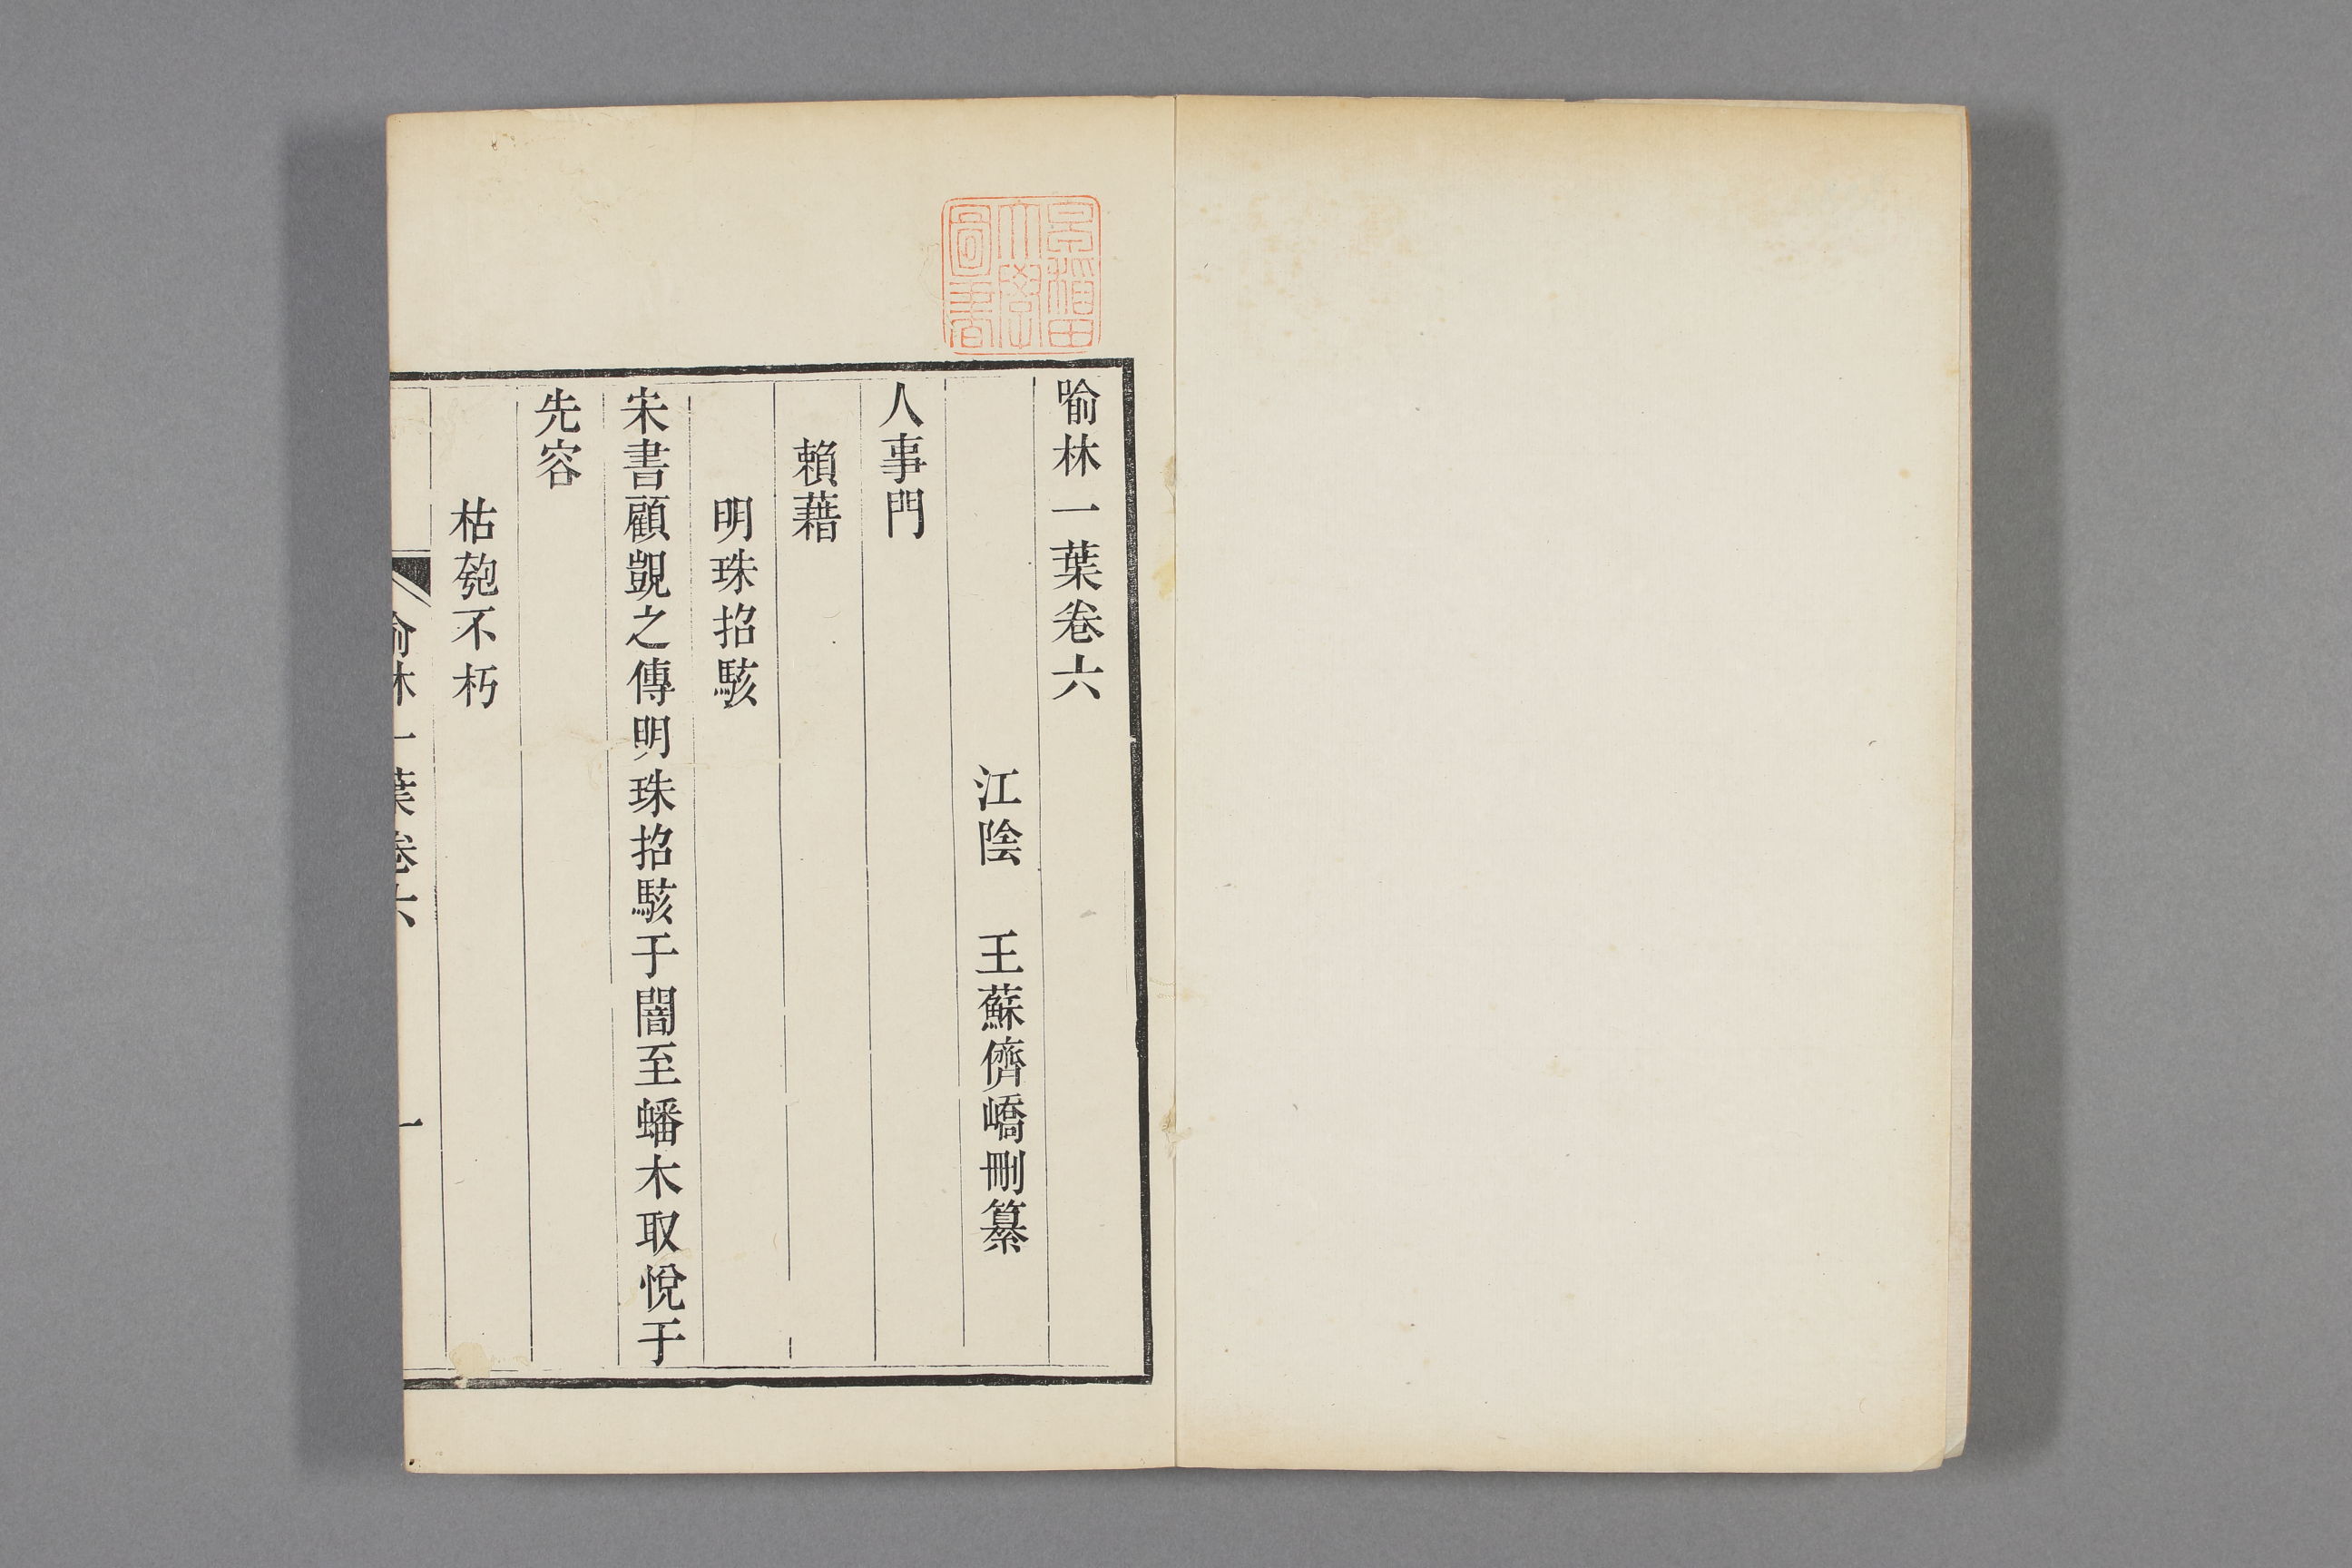 喻林一葉卷六
江陰　王蘇儕嶠刪纂
人事門
賴藉
明珠招駭
宋書顧覬之傳明珠招駭于闇至蟠木取悅于
先容
枯匏不朽
喻林一葉卷六　一
早稻田大學圖書